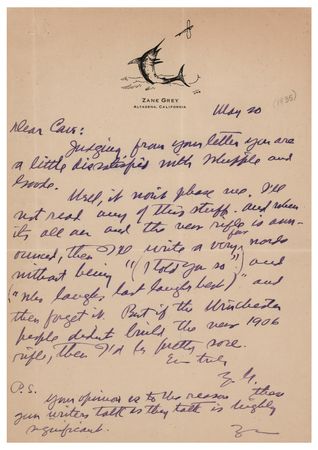 ZANE GREY
ALTADENA, CALIFORNIA
May 20
(1935)
Dear Cave:
Judging from your letter you are
a little dissatisfied with Whipple and
Goode.
Well, it won't phase me. I'll
not read any of this stuff. And when
its all over and the new rifle is ann-
ounced, then I'll write a very few words
without being "(I told you so") and
("who laughs last laughs best)" and
then forget it. But if the Winchester
people didnt build the new 1906
rifle, then I'd be pretty sore.
Ever truly
Z. G.
P.S. Your opinion as to the reason these
gun writers talk as they talk is highly
significant.